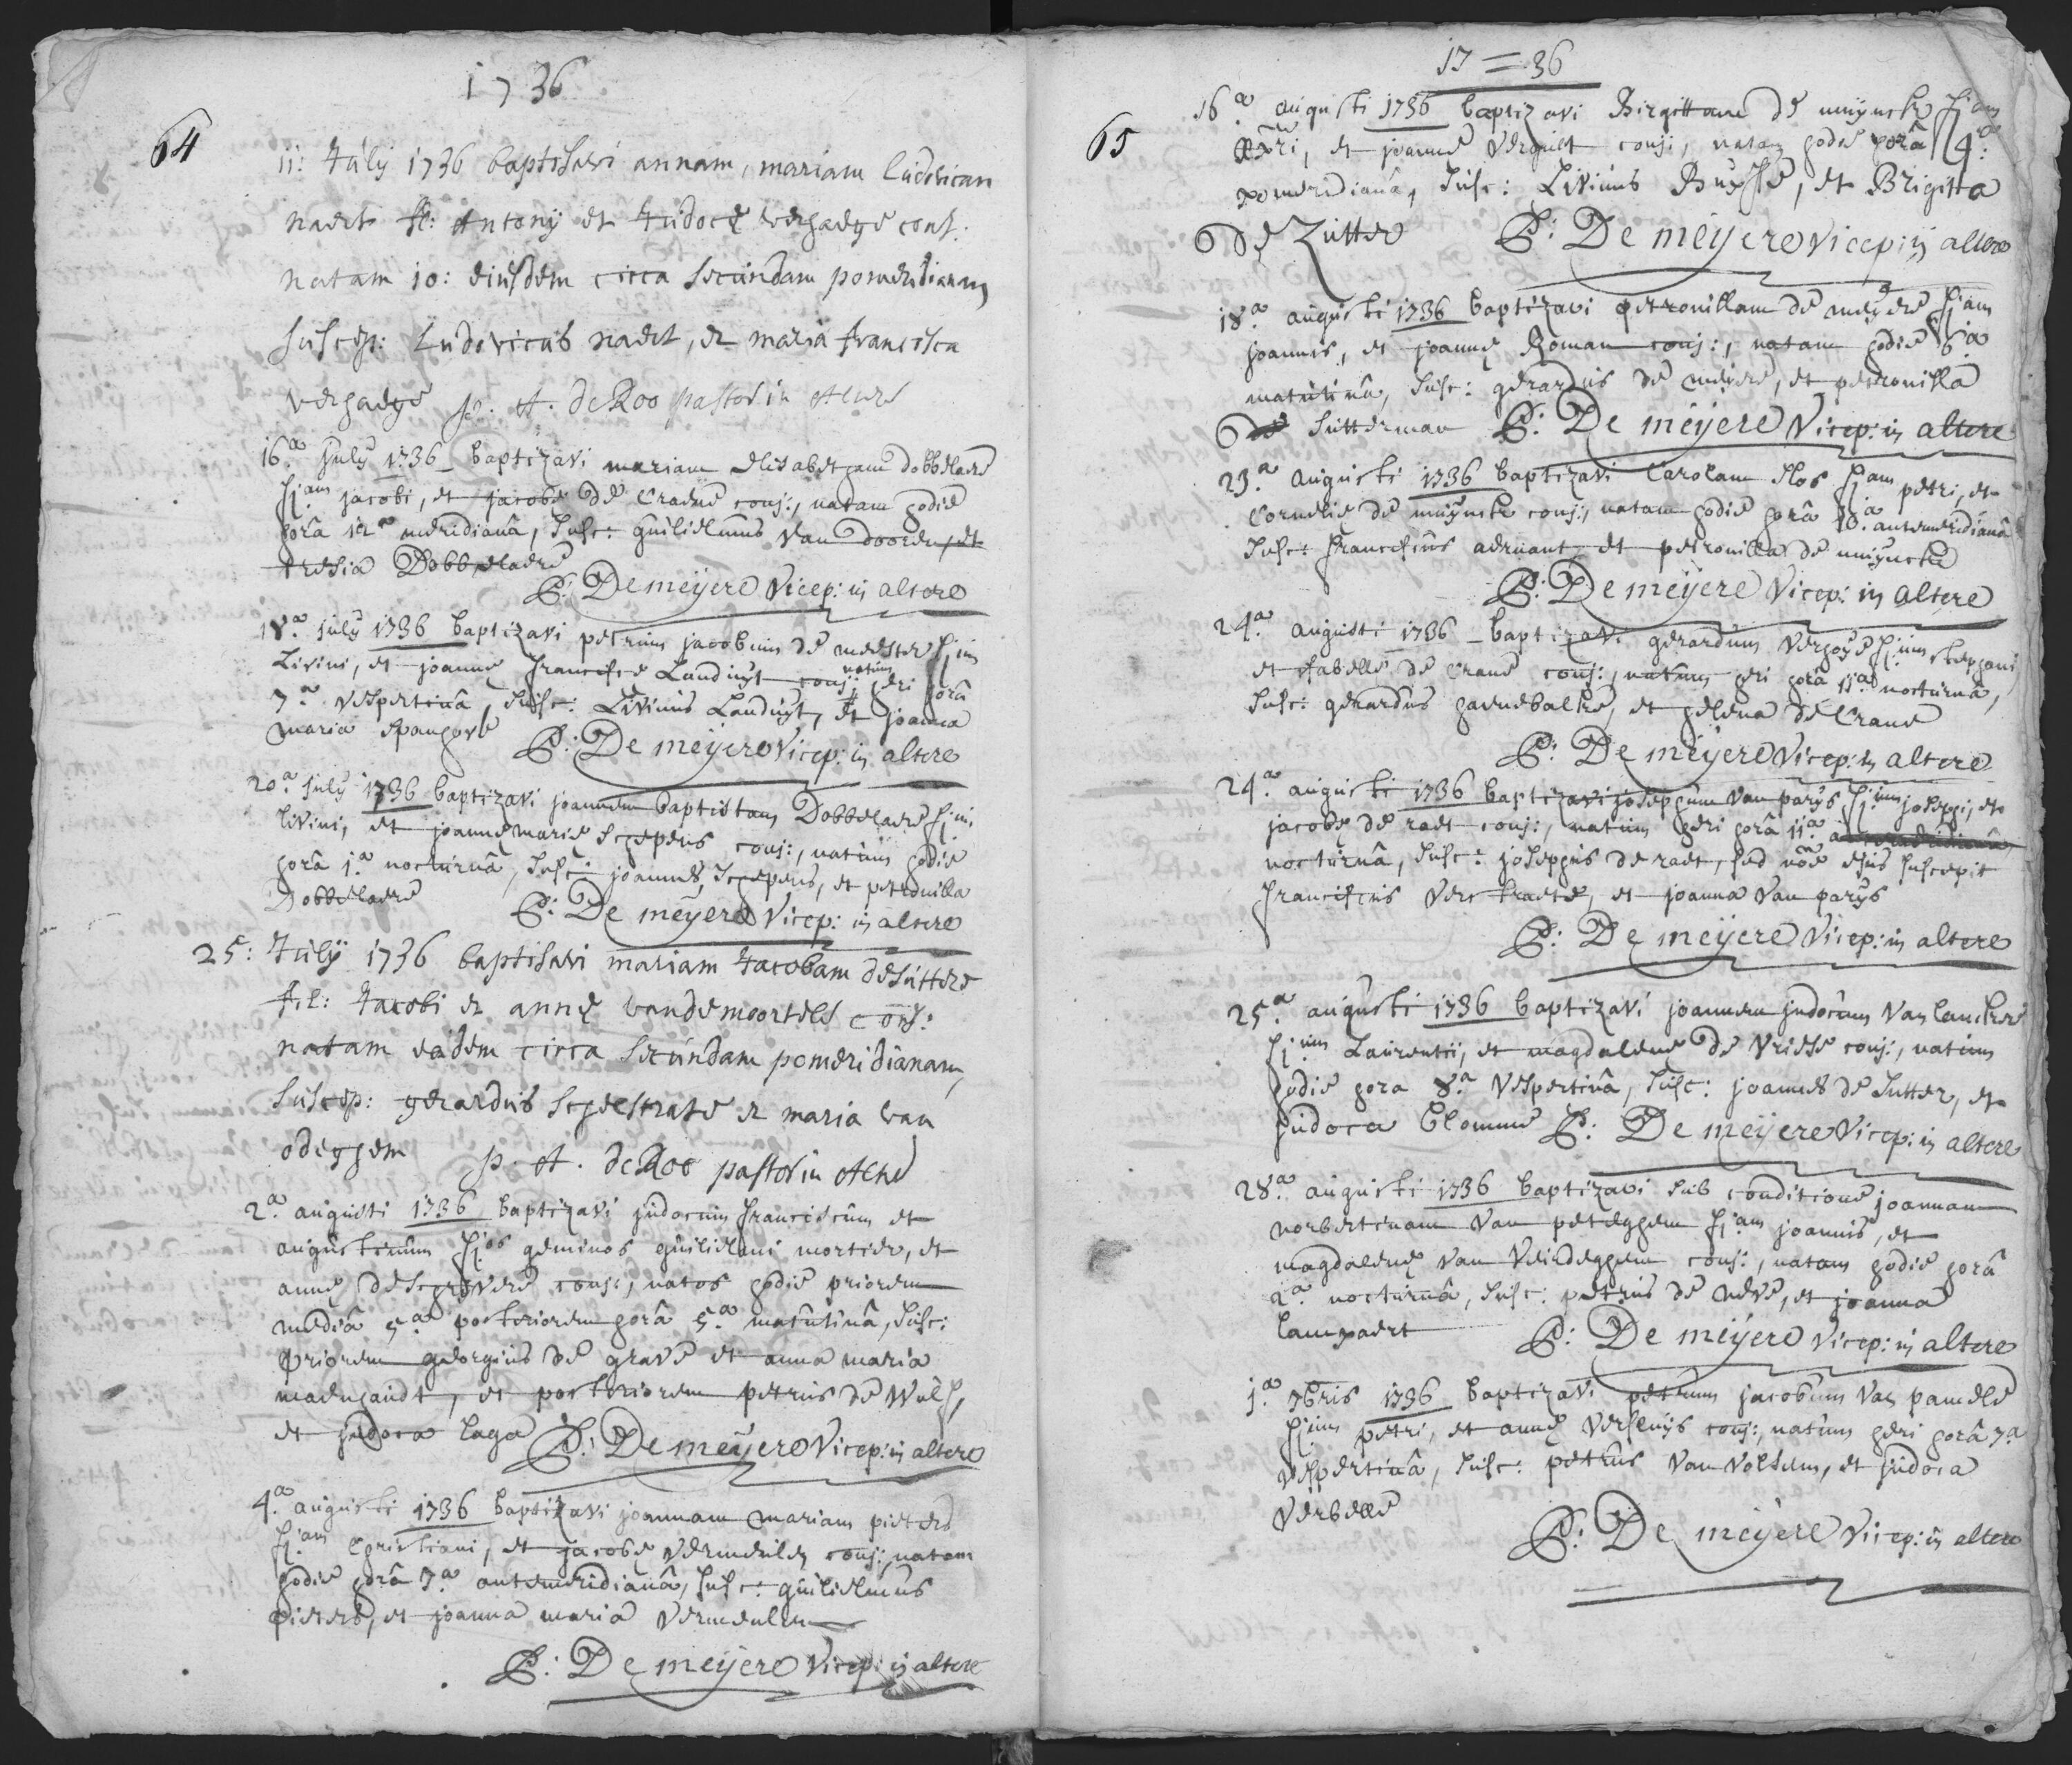 1736
64
11: July 1736 baptisavi annam, mariam Ludovicam
naert fil: Antony et Judocę verhaege conj.
natam 10: eiusdem circa secundam pomeridianam,
suscep: Ludovicus naert, et maria francisca
verhaege p. A. de Roo pastor in Altre
16.a july 1736 baptizavi mariam elisabetham dobbelaere
fi.am jacobi, et jacobę de Craene conj:, natam hodie
horâ 12.a meridianâ, susc: guilielmus Van dooren, et
tresia Dobbelaere
P: De meÿere Vicep: in altere
18.a july 1736 baptizavi petrum jacobum de meester fi.um
Livini, et joannę francisce Landuyt conj: natum heri horâ
7.a vespertinâ, susc: Livinus Landuyt, et joanna
maria Spanhove P: De meÿere Vicep: in altere
20.a july 1736 baptizavi joannem baptistam Dobbelaere fi.um
livini, et joannę marię Schepens conj:, natum hodie
horâ 1.a nocturnâ, susc: joannes Schepens, et petronilla
Dobbelaere P: De meÿere Vicep: in altere
25: July 1736 baptisavi mariam Jacobam de Suttere
fil: Jacobi et annę vande moortele conj:
natam eadem circa secundam pomeridianam,
suscep: gerardus Scheestraete et maria van
odeghem p. A. de Roo pastor in Altre
2.a augusti 1736 baptizavi judocum franciscum et
augustinum fi.os geminos guilielmi mortier, et
annę de Schrÿvere conj:, natos hodie priorem
mediâ 5.a posteriorem horâ 5.a matutinâ, susc:
priorem georgius de grave et anna maria
maenhaudt, et posteriorem petrus de Wulf,
et judoca Laga P: De meÿere Vicep: in altere
4.a augusti 1736 baptizavi joannam mariam pieters
fi.am Christiani, et jacobę Vermeulen conj: natam
hodie horâ 7.a antemeridianâ, susc: guilielmus
pieters, et joanna maria Vermeulen
P: De meÿere Vicep: in altere
17=36
65
16.a augusti 1736 baptizavi Birgittam de muÿnck fi.am
et joannę Verguist conj:, natam hodie horâ 4.a
pomeridianâ, susc: Livinus Buÿsse, et Brigitta
De Zutter P: De meÿere vicep: in altere
18.a augusti 1736 baptizavi petronillam de meÿere fi.am
joannis, et joannę Roman conj:, natam hodie 6.a
matutinâ, susc: gerardus de meÿere, et petronilla
Sutterman P: De meÿere Vicep: in altere
23.a augusti 1736 baptizavi Carolam Slos fi.am petri, et
Cornelię de muÿnck conj:, natam hodie horâ 10.a antemeridianâ
susc: franciscus aernant, et petronilla de muÿnck
P: De meÿere Vicep: in altere
24.a augusti 1736 baptizavi gerardum Verhoÿe fi.um stephani
et isabellę de Crane conj:, natum heri horâ 11.a nocturnâ,
susc: gerardus haenebalke, et helena de Crane
P: De meÿere Vicep: in altere
24.a augusti 1736 baptizavi josephum Van parÿs fi.um josephi, et
jacobę de raet conj:, natum heri horâ 11.a
nocturnâ, susc: josephus de raet, sed nõe ejus suscepit
franciscus Verstraete, et joanna Van parÿs
P: De meÿere Vicep: in altere
25.a augusti 1736 baptizavi joannem judocum Van lancker
fi.um Laurentii, et magdalenę De Vriese conj:, natum
hodie hora 8.a Vespertinâ, susc: joannes de Sutter, et
judoca Clomme P: De meÿere Vicep: in altere
28.a augusti 1736 baptizavi sub conditione joannam
norbertinam Van peteghem fi.am joannis, et
magdalenę Van Veirdeghem conj:, natam hodie horâ
2.a nocturnâ, susc: petrus de neve, et joanna
Lampaert P: De meÿere Vicep: in altere
1.a 7bris 1736 baptizavi petrum jacobum Van pamele
fi.um petri, et annę Versluÿs conj:, natum heri horâ 7.a
vespertinâ, susc: petrus Van Volsem, et judoca
Verbelle
P: De meÿere Vicep: in altere